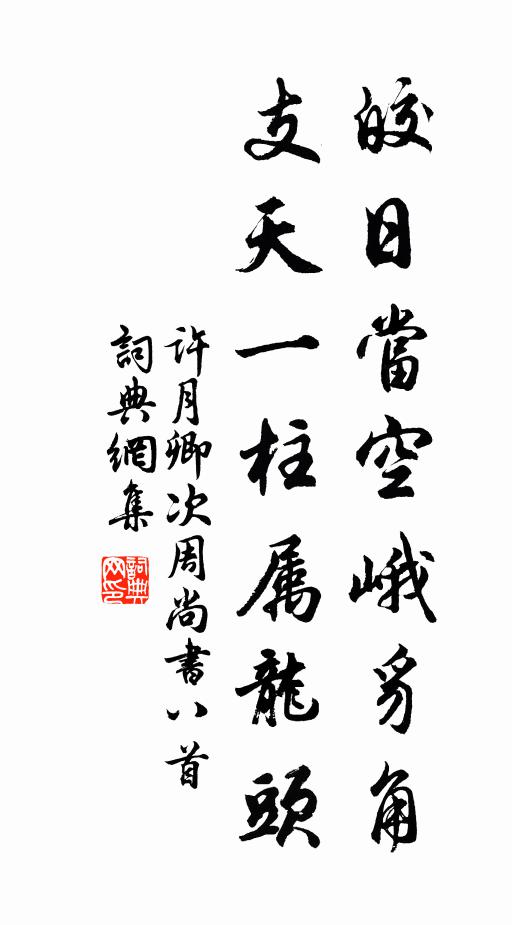 皎日當空峨豸角
支天一柱属龍頭
許月卿次周尚書八首
詞典網集
詞典网印